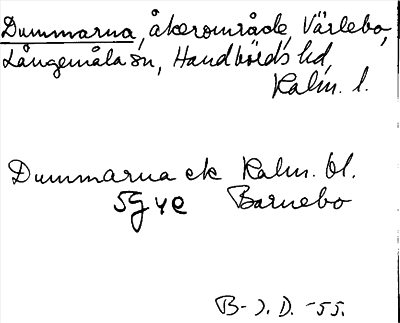 Dummarna, åkerområde, Värlebo,
Långemåla sn, Handbörds hd,
Kalm. l.
Dummarna ek Kalm. bl.
5G ye Barnebo
B-J. D. -55.